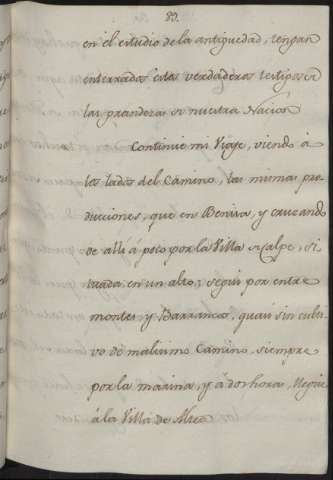 89.
en el estudio de la antiguedad, tengan
enterrados estos verdaderos testigos de
las grandezas de nuestra Nacion
Continué mi Viaje, viendo á
los lados del Camino, las mismas pro
ducciones, que en Benisa, y cruzando
de alli á poco por la Villa de Calpe, si
tuada en un alto, segui por entre
montes, y Barrancos, quasi sin culti
vo de malisimo Camino, siempre
por la marina, y á dos horas, llegue
á la Villa de Altea